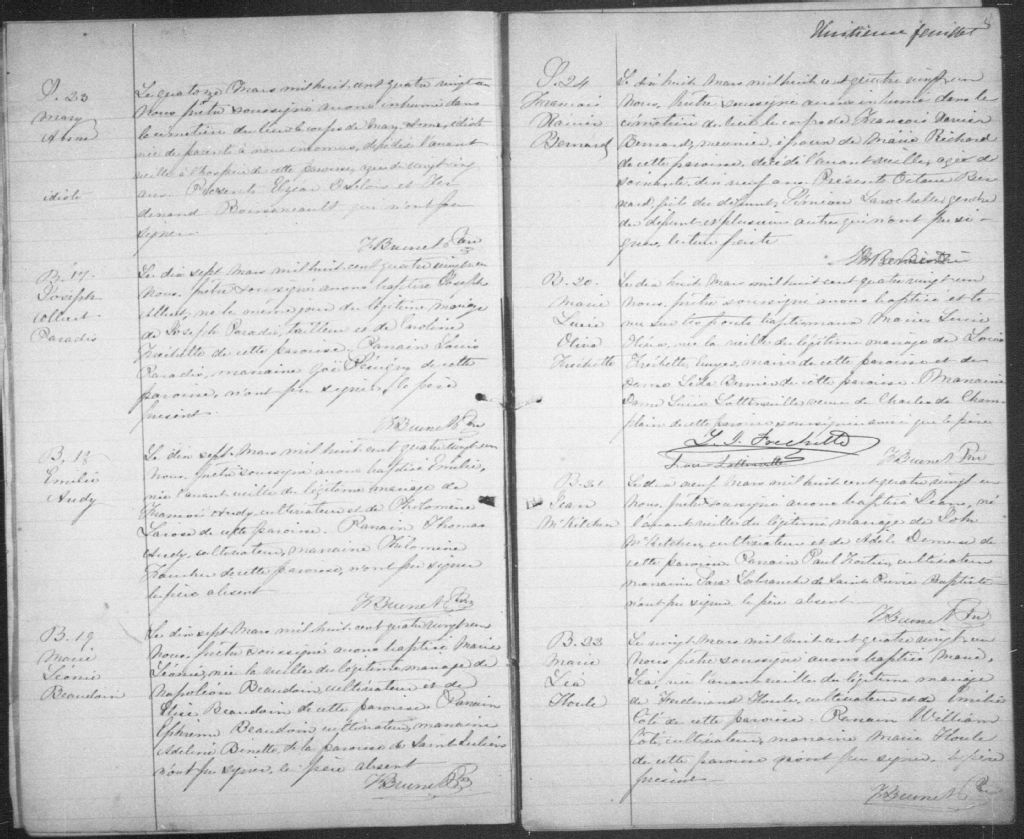 S. 23
Mary
Anne
idiote
Le quatorze Mars mil huit cent quatre vingt un
Nous, prêtre soussigné avons inhumé dans
le cimetière du lieu le corps de Mary Anne, idiote
née de parents à nous inconnus, décédée l'avant
veille à l'hospice de cette paroisse, âgée de vingt cinq
ans. Présents et Fer
dinand Boissoneault qui n'ont pu
signer.
F. Brunet Ptre
B. 17.
Joseph
Albert
Paradis
Le dix sept Mars mil huit cent quatre vingt un
Nous, prêtre soussigné avons baptisé Joseph
Albert, né le même jour du légitime mariage
de Joseph Paradis, tailleur et de Caroline
Frechette de cette paroisse. Parrain Louis
Paradis, marraine de cette
paroisse, n'ont pu signer, le père
présent.
F. Brunet Ptre
B. 18
Emilie
Le dix sept Mars mil huit cent quatre vingt un
Nous, prêtre soussigné avons baptisé Emilie,
née l'avant veille du légitime mariage de
cultivateur et de Philomène
Larose de cette paroisse. Parrain Thomas
cultivateur, marraine Philomène
de cette paroisse, n'ont pu signer
le père absent.
F. Brunet Ptre
B. 19
Marie
Léonie
Beaudoin
Le dix sept Mars mil huit cent quatre vingt un
Nous, prêtre soussigné avons baptisé Marie
Léonie, née la veille du légitime mariage de
Napoléon Beaudoin cultivateur et de
Elise Beaudoin de cette paroisse. Parrain
Ephrem Beaudoin cultivateur, marraine
Adeline de la paroisse de Saint Julien
n'ont pu signer, le père absent
F. Brunet Ptre
Huitième feuillet 8
S. 24
Francois
Xavier
Bernard
Le dix huit Mars mil huit cent quatre vingt un
Nous, prêtre soussigné avons inhumé dans le
cimetière du lieu le corps de François Xavier
Bernard, meunier, époux de Marie Richard
de cette paroisse, décédé l'avant veille, agé de
soixante dix neuf ans. Présents Octave Ber
nard, fils du défunt, Siméon Larochelle, gendre
du défunt et plusieurs autres qui n'ont pu si-
gner, lecture faite
B. 20.
Marie
Lucie
Oliva
Frechette
Le dix huit Mars mil huit cent quatre vingt un
Nous, prêtre soussigné avons baptisé et te-
nu sur les fonts baptismaux Marie Lucie
Oliva, née la veille du légitime mariage de Louis
Frechette Ecuyer, maire de cette paroisse et de
Dame Léda Bernier de cette paroisse. Marraine
Dame Lucie veuve de Charles de Cham-
plain de cette paroisse soussignée ainsi que le père
L. I. Frechette
F. Brunet Ptre
B. 21
Jean
McKitchen
Le dix neuf Mars mil huit cent quatre vingt un
Nous, prêtre soussigné avons baptisé Jean, né
l'avant veille du légitime mariage de John
McKitchen, cultivateur et de Adèle Demers de
cette paroisse Parrain Paul Fortier, cultivateur
marraine Sara Labranche de Saint Pierre Baptiste
n'ont pu signer le père absent.
F. Brunet Ptre
B. 22
Marie
Léa
Houle
Le vingt Mars mil huit cent quatre vingt un
Nous, prêtre soussigné avons baptisé Marie,
Léa, née l'avant veille du légitime mariage
de Ferdinand Houle, cultivateur et de Emilie
Coté de cette paroisse. Parrain William
Coté, cultivateur, marraine Marie Houle
de cette paroisse n'ont pu signer, le père
présent.
F. Brunet Ptre